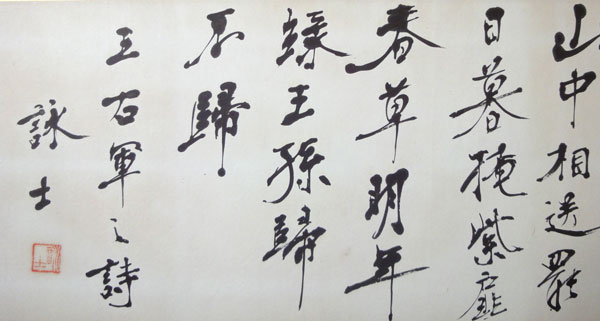 山中相送罷
日暮掩紫扉
春草明年
緑王孫歸
不歸
王右軍之詩
詠士